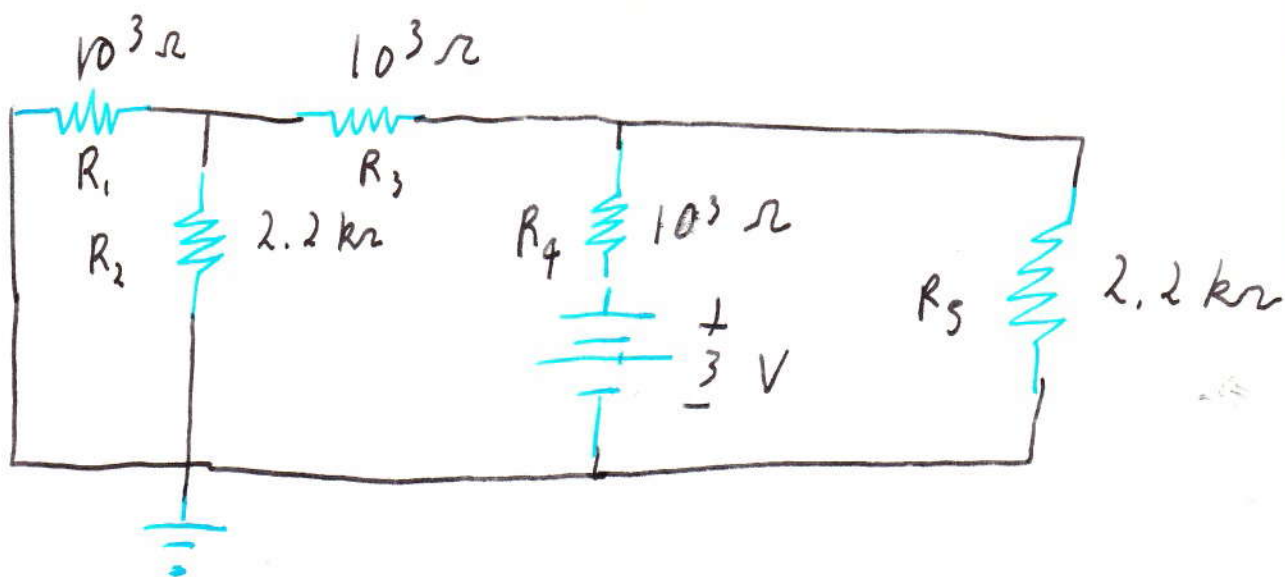 10³Ω 10³Ω
R₁ R₃
R₂ 2.2 kΩ R₄ 10³ Ω R₅ 2.2 kΩ
+
3 V
−